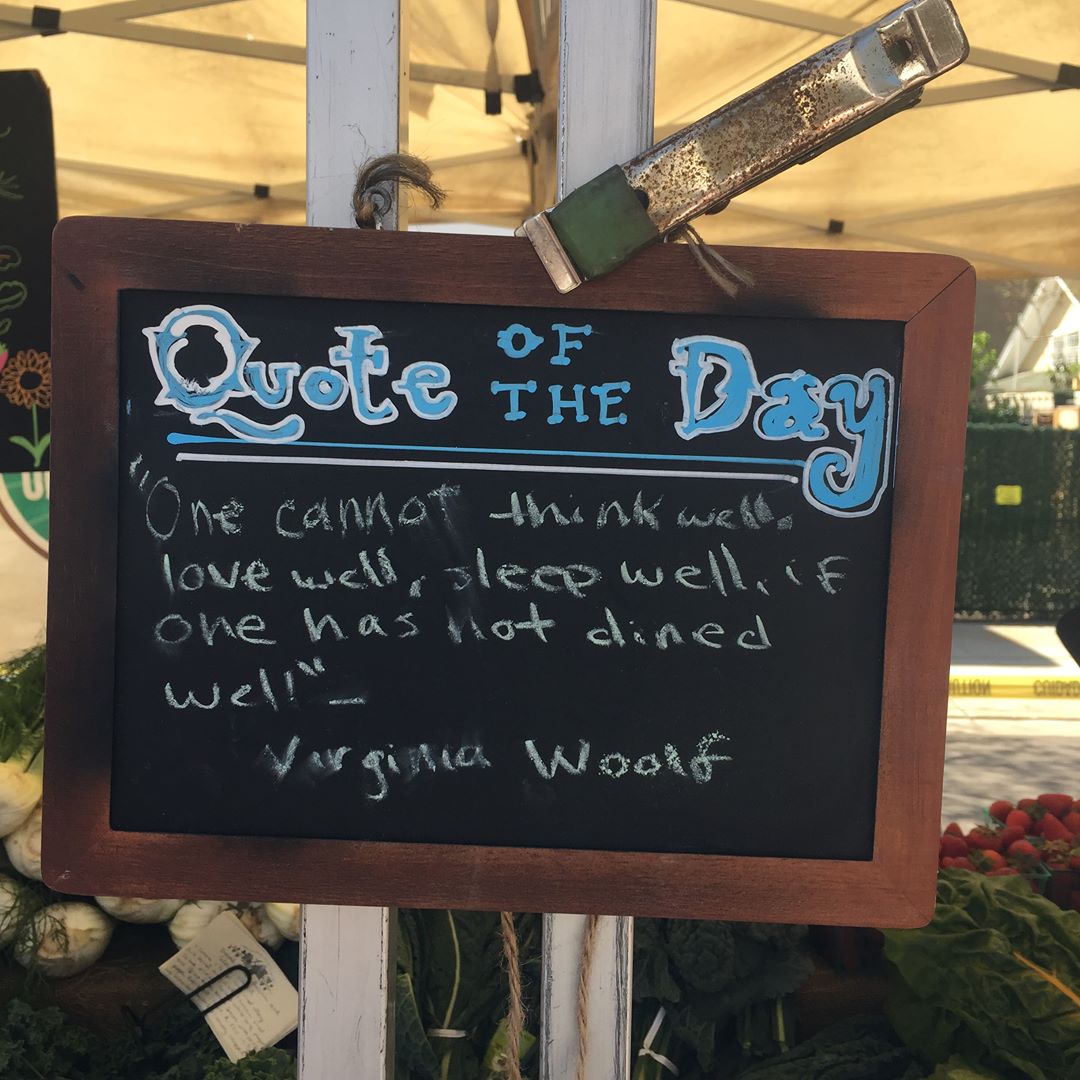 Quote OF THE Day
"One cannot think well,
love well, sleep well, if
one has not dined
well" –
Virginia Woolf